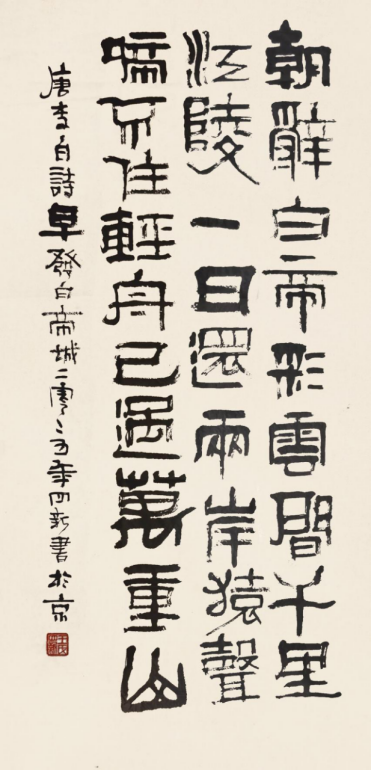 朝辭白帝彩雲間千里
江陵一日還兩岸猿聲
啼不住輕舟已過萬重山
唐李白詩早發白帝城二零〻五年四新書於京